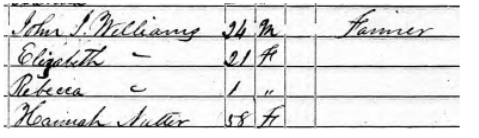 John S. Williams 24 M Farmer
Elizabeth " 21 F
Rebecca " 1 "
Hannah Nutter 58 F